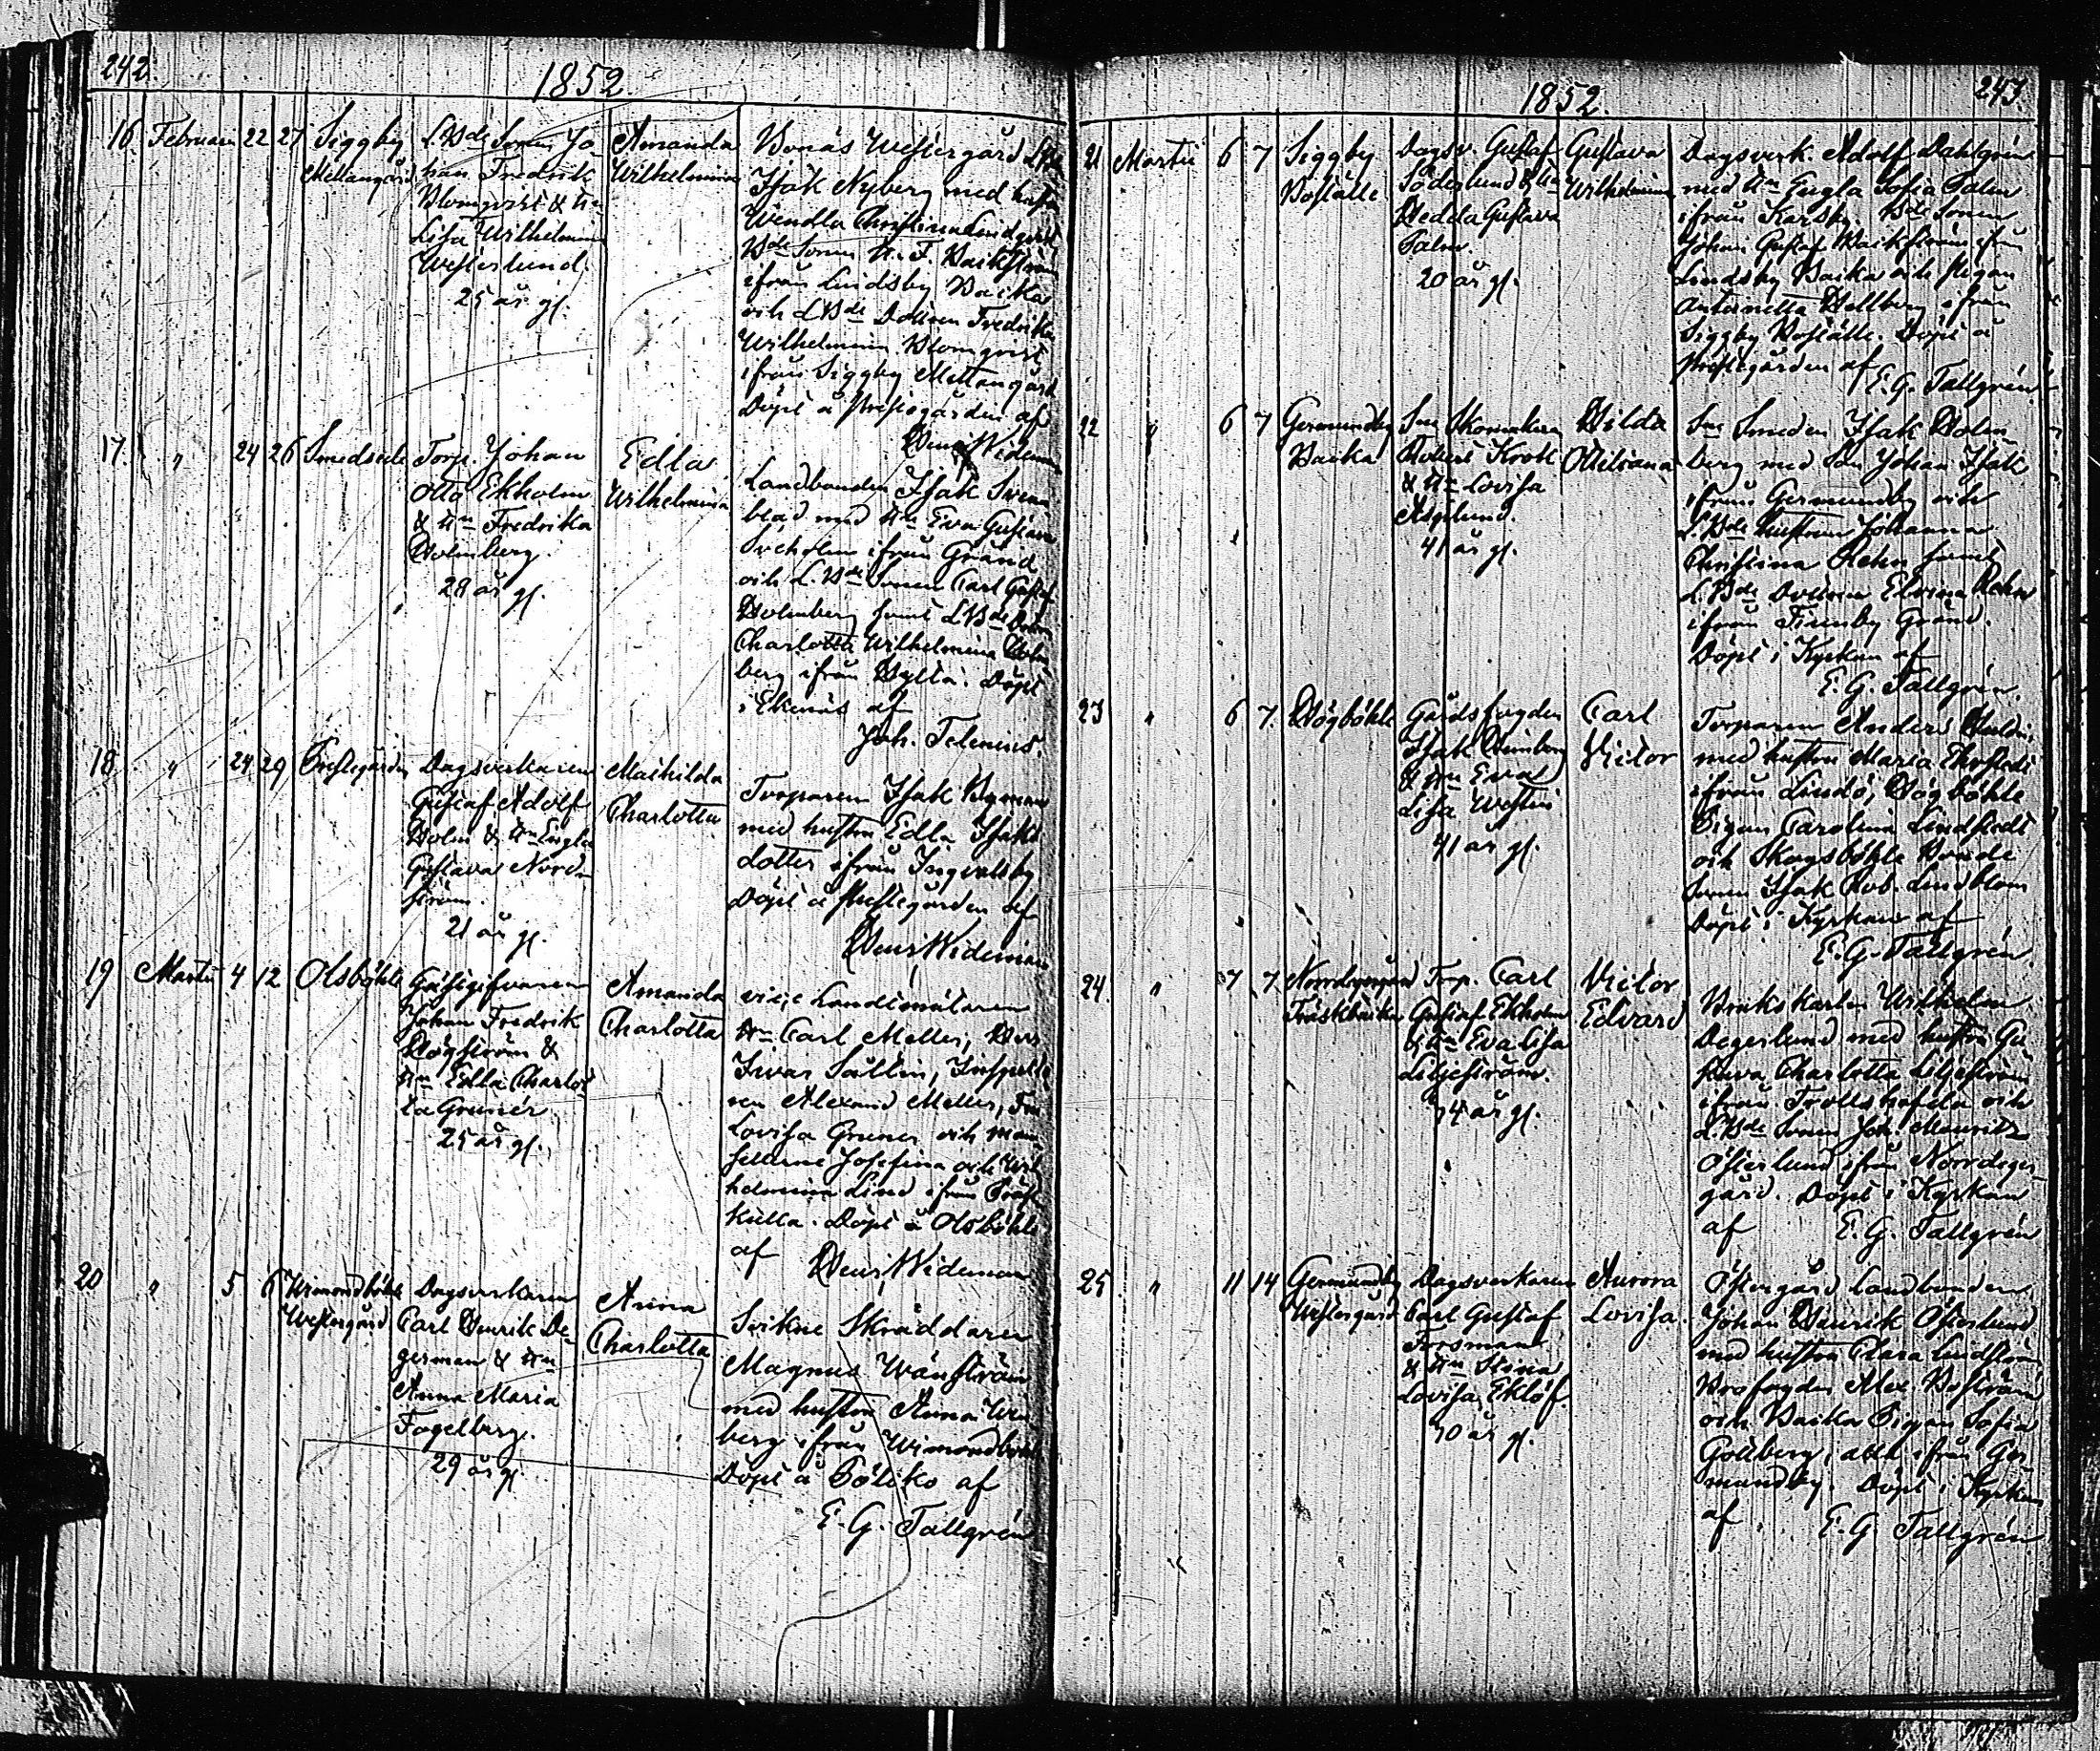 242
1852
16 Februari 22 27 Siggby
Mellangård
L.Bde Sonen Jo-
han Fredrik
Blomqvist & Hu
Lisa Wilhelmina
Westerlund.
25 år gl.
Amanda
Wilhelmina
Bonäs Westergård
Isak Nyberg med hustru
Wendla Christina Lindqvist
Bde Sonen
ifrån Lindsby Backa
och L.Bde Dottren Fredrika
Wilhelmina Blomqvist
ifrån Siggby Mellangård
Döpt å Prestegården af
Wideman
17. " 24 26 Smedsede
Torp. Johan
Otto Ekholm
& Hu Fredrika
Holmberg.
28 år gl.
Edla
Wilhelmina
Landbonden Isak
med Hu Eva Gustava
ifrån Gränd
och L.Bde Sonen Carl Gustaf
Holmberg samt L.Bde
Charlotta Wilhelmina Holm
berg ifrån Hylta. Döpt
i Ekenäs af
Joh. Telenius.
18. " 24 29 Prestegården
Dagsverkaren
Gustaf Adolf
Holm & Hu Engla
Gustava Nord-
ström.
21 år gl.
Mathilda
Charlotta
Torparen Isak Nyman
med hustru Edla Isaks
dotter ifrån Ingvalsby
Döpt å Prestegården af
Wideman
19 Martii 4 12 Olsböhle
Gästgifvaren
Johan Fredrik
Högström &
Hu Edla Charlot
ta Grunér.
25 år gl.
Amanda
Charlotta
vice Landtmätaren
Hr Carl Meller, Herr
Ivar Sallin, Inspekto
ren Alexand Meller, Fru
Lovisa Gruner och Mam
sellerne Josefina och Wil
helmina Lind ifrån Präst
kulla. Döpt å Olsböhle
af Wideman
20 " 5 6 Wimondböhle
Westergård
Dagsverkaren
Carl Henrik De-
german & Hu
Anna Maria
Fagelberg.
29 år gl.
Anna
Charlotta
Sockne Skräddaren
Magnus Wänström
med hustru Anna
berg ifrån Wimondböhle
Döpt å af
E. G. Tallgrén
243.
1852.
21 Martii 6 7 Siggby
Boställe
Dagsv. Gustaf
Söderlund & Hu
Hedda Gustava
Palm.
20 år gl.
Gustava
Wilhelmina
Dagsverk. Adolf Dahlgrén
med Hu Engla Sofia Palm
ifrån Karsby. Bde Sonen
Johan Gustaf Backström ifrån
Lindsby Backa och Pigan
Antonetta Hellberg ifrån
Siggby Boställe. Döpt å
Prestegården af
E. G. Tallgrén
22 " 6 7 Germundby
Backa
Skomakaren
Robert Krook
& Hu Lovisa
Asplund.
41 år gl.
Hilda
Smeden Isak Holm
berg med Son Johan Isak
ifrån Germundby och
L.Bde hustrun Johanna
Christina Rehn samt
L.Bde Dottren Elvina Rehn
ifrån Finnby Gränd.
Döpt i Kyrkan af
E. G. Tallgrén.
23 " 6 7. Högböhle
Gårdsfogden
Isak
& Hu Eva
Lisa Westin
41 år gl.
Carl
Victor
Torparen Anders
med hustru Maria
ifrån Lindö, Högböhle
Pigan Carolina Lindstedt
och Skogsböhle Bonde
Sonen Isak Rob. Lindblom
Döpt i Kyrkan af
E. G. Tallgrén.
24. " 7 7. Norrdegergård
Träskbacka
Torp. Carl
Gustaf Ekholm
& Hu Eva Lisa
Liljeström.
Victor
Edvard
Brukskarlen Wilhelm
Degerlund med hustru Gu
stava Charlotta Liljeström
ifrån Trollshofda och
L.Bde Sonen Joh. Mauritz
Österlund ifrån Norrdeger
gård. Döpt i Kyrkan
af E. G. Tallgrén
25 " 11 14 Germundby
Westergård
Dagsverkaren
Carl Gustaf
Forsman
& Hu Stina
Lovisa Eklöf.
Aurora
Lovisa.
Östergård Landbonden
Johan Henrik Österlund
med hustru Clara Lindström
Alex. Boström
och Backa Pigan Sofia
Gottberg, alla ifrån Ger
mundby. Döpt i Kyrkan
af E. G. Tallgrén